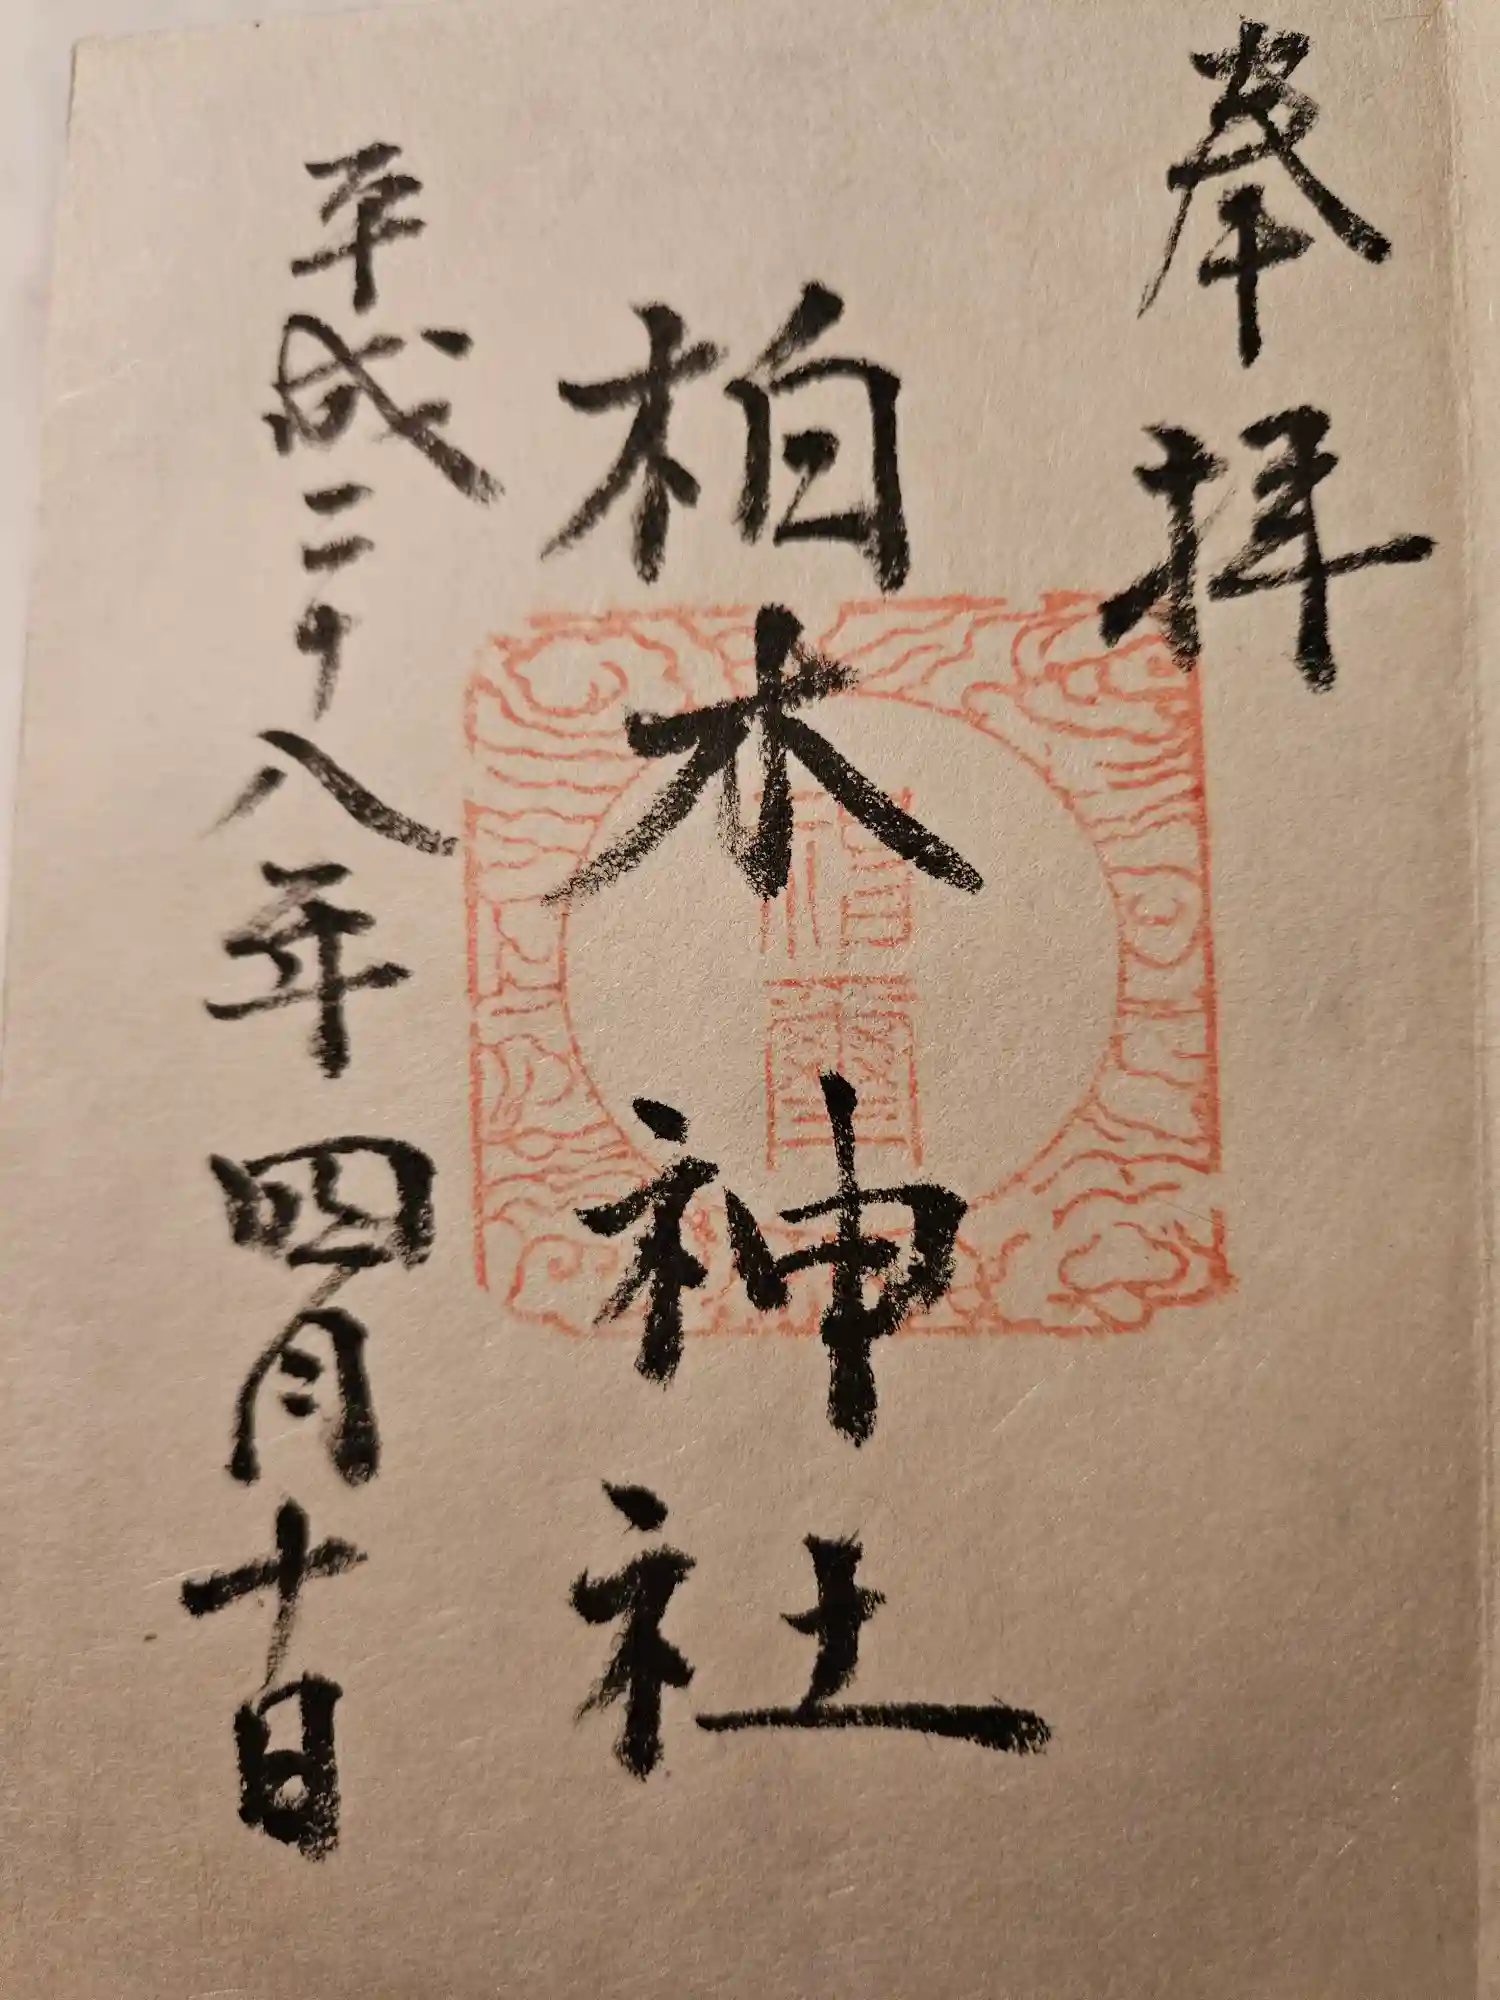 奉拝
柏木神社
平成二十八年四月十日